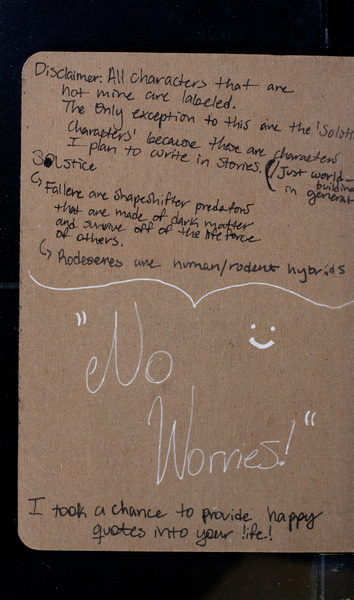 Disclaimer: All characters that are
not mine are labeled.
The only exception to this are the 'Solstice
Characters' because these are characters
I plan to write in stories. (Just world-
building
in general
Solstice
↳ Fallere are shapeshifter predators
that are made of dark matter
and survive off of the life force
of others.
↳ Rodeseres are human/rodent hybrids
"No
Worries!"
I took a chance to provide happy
quotes into your life!